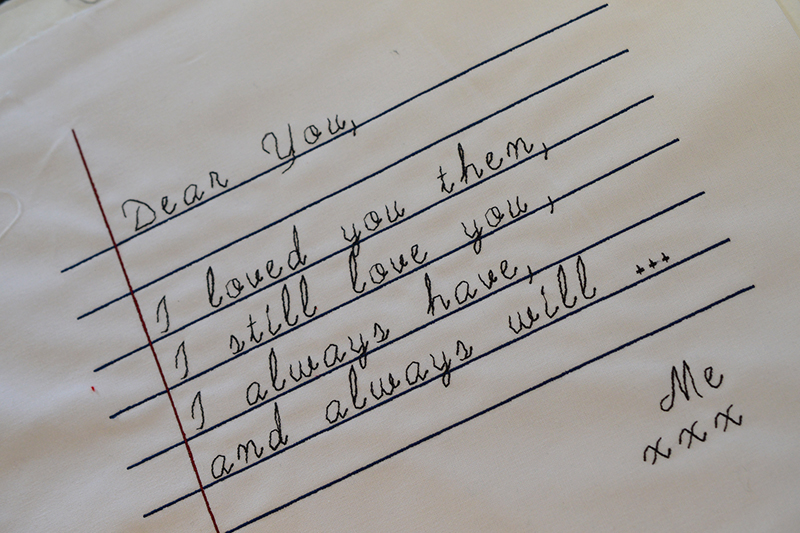 Dear You,
I loved you then,
I still love you,
I always have,
and always will ...
Me
xxx